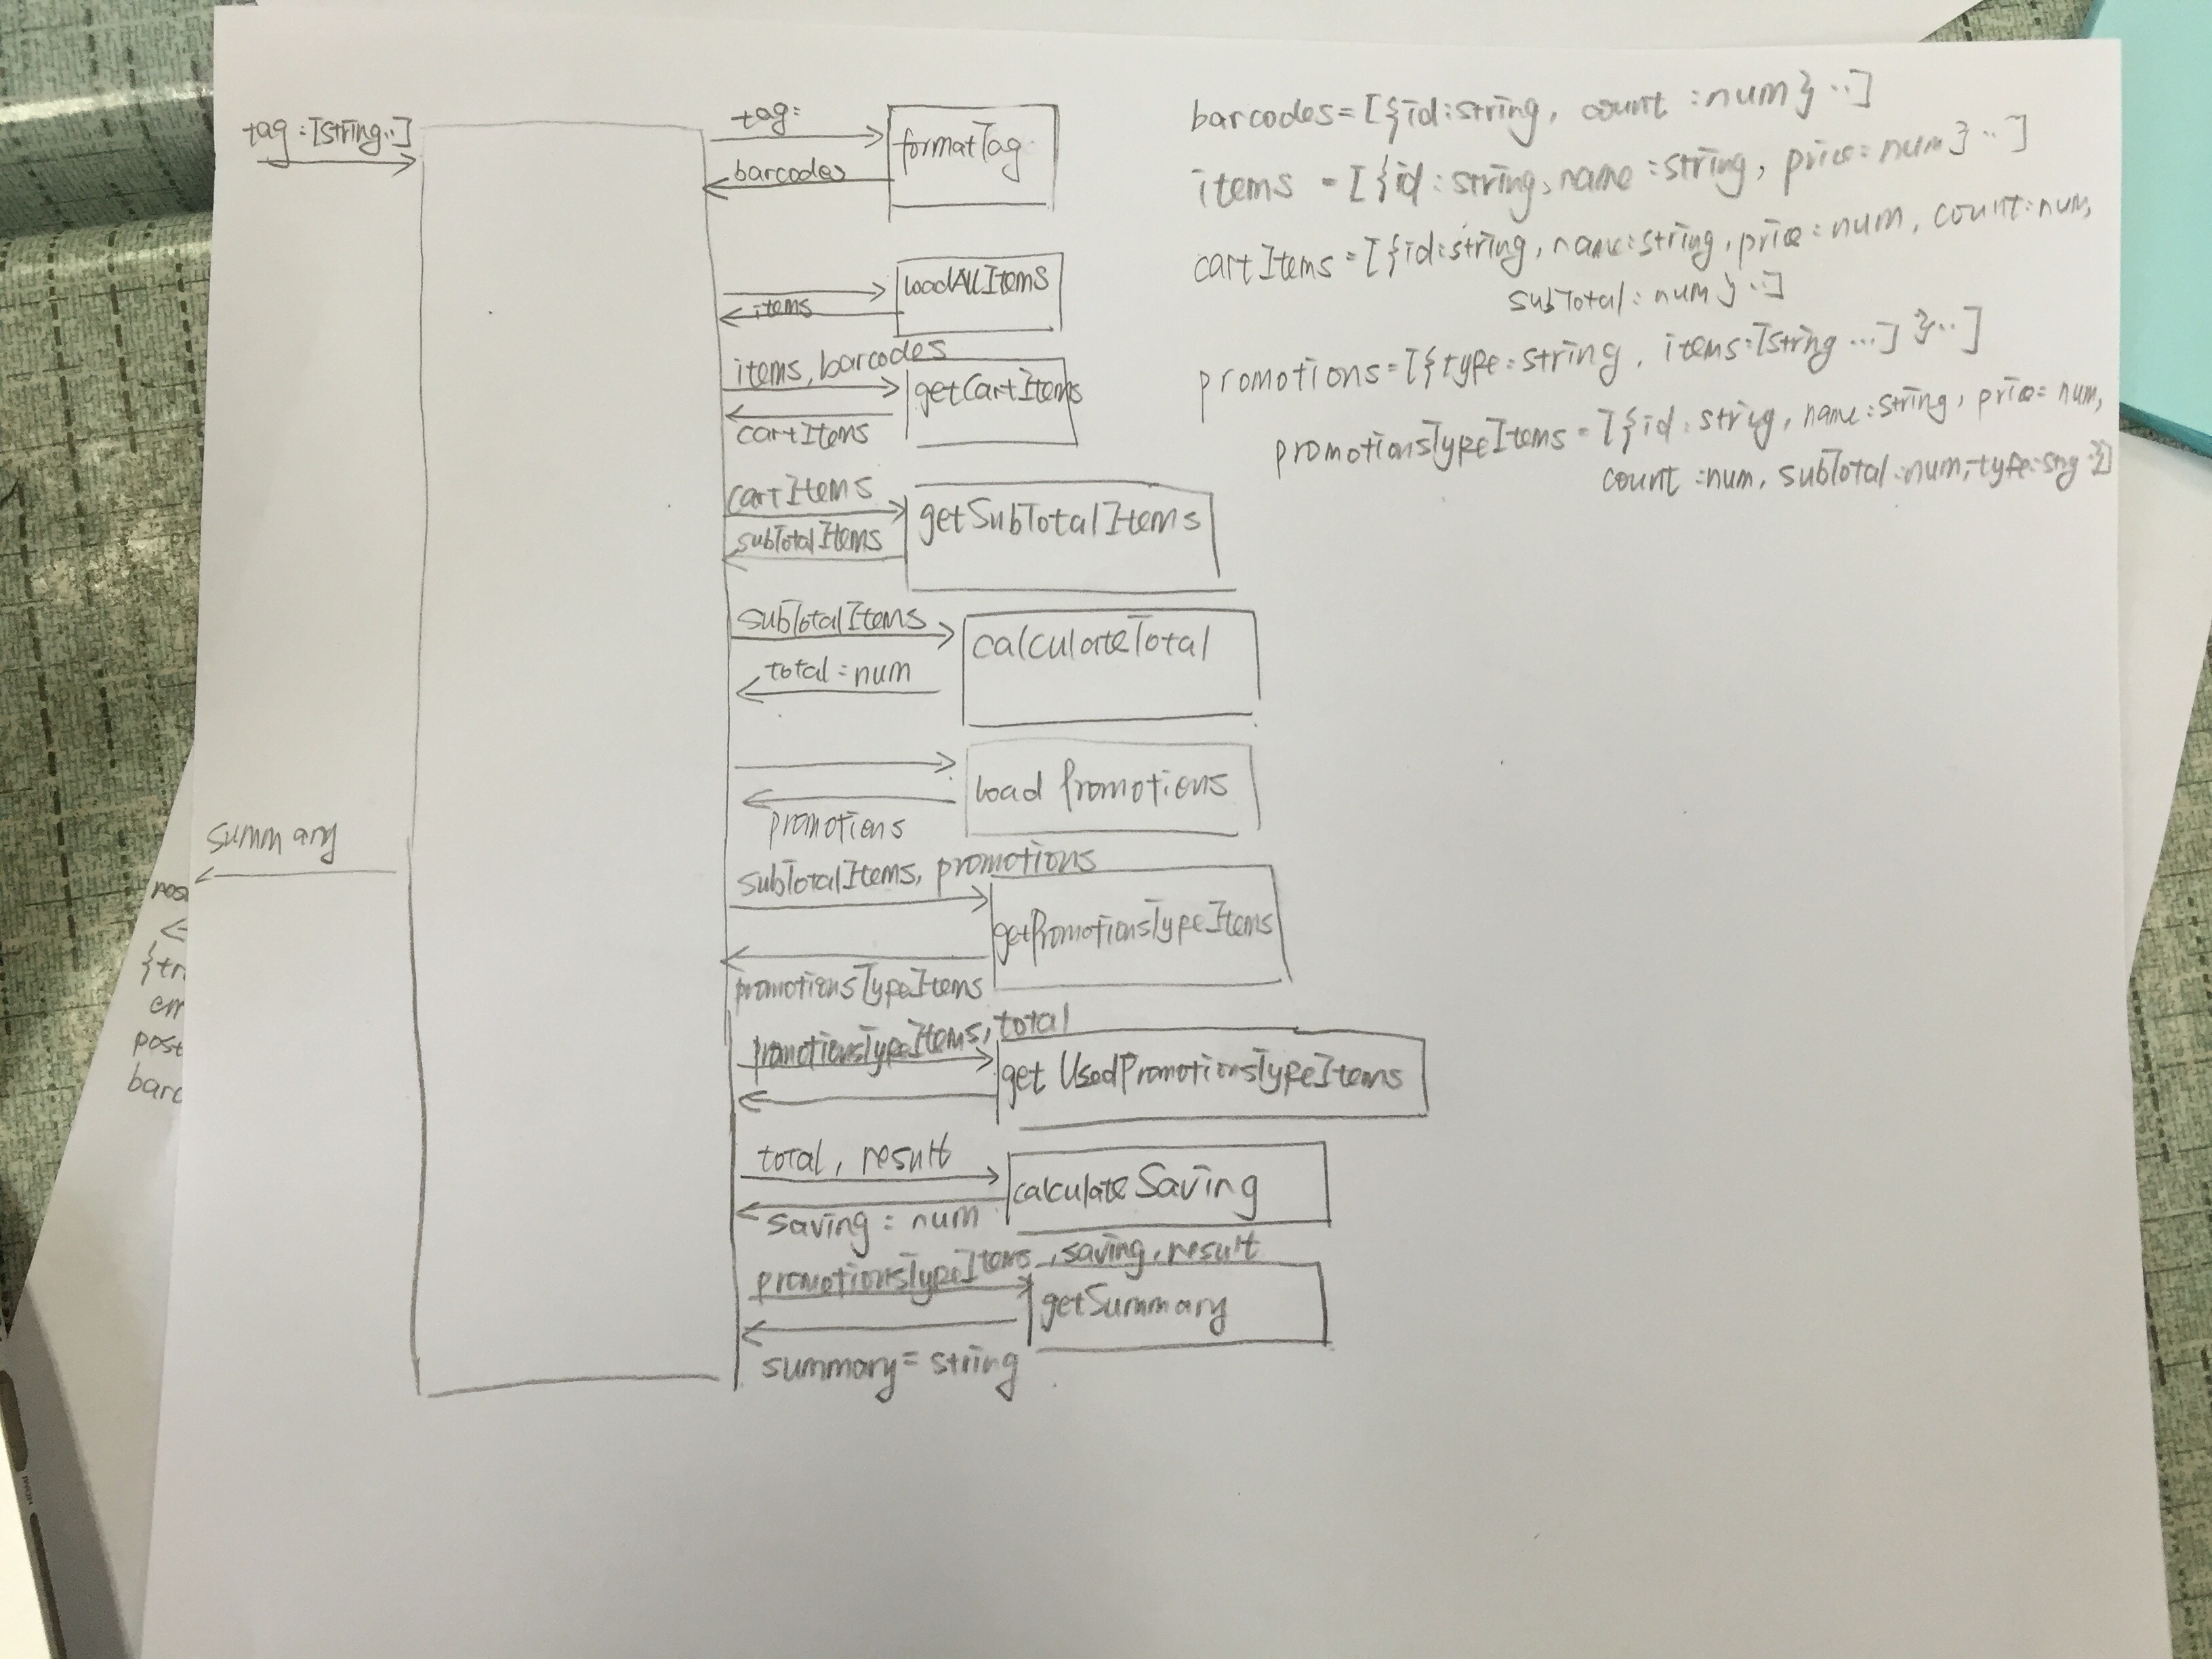 tag:[string..]
tag:
formatTag
barcodes
loadAllItems
items
items, barcodes
getCartItems
cartItems
cartItems
getSubTotalItems
subTotalItems
subTotalItems
calculateTotal
total:num
load Promotions
promotions
summary
subTotalItems, promotions
getPromotionsTypeItems
promotionsTypeItems
promotionsTypeItems, total
get UsedPromotionsTypeItems
total, result
calculateSaving
saving: num
promotionsTypeItems, saving, result
getSummary
summary=string
barcodes=[{id:string, count:num}..]
items=[{id:string,name:string, price:num}..]
cartItems=[{id:string, name:string, price:num, count:num,
subTotal:num}..]
promotions=[{type:string, items:[string...]}..]
promotionsTypeItems=[{id:string, name:string, price:num,
count:num, subTotal:num, type:sng}]
pos
{tr
em
post
barc